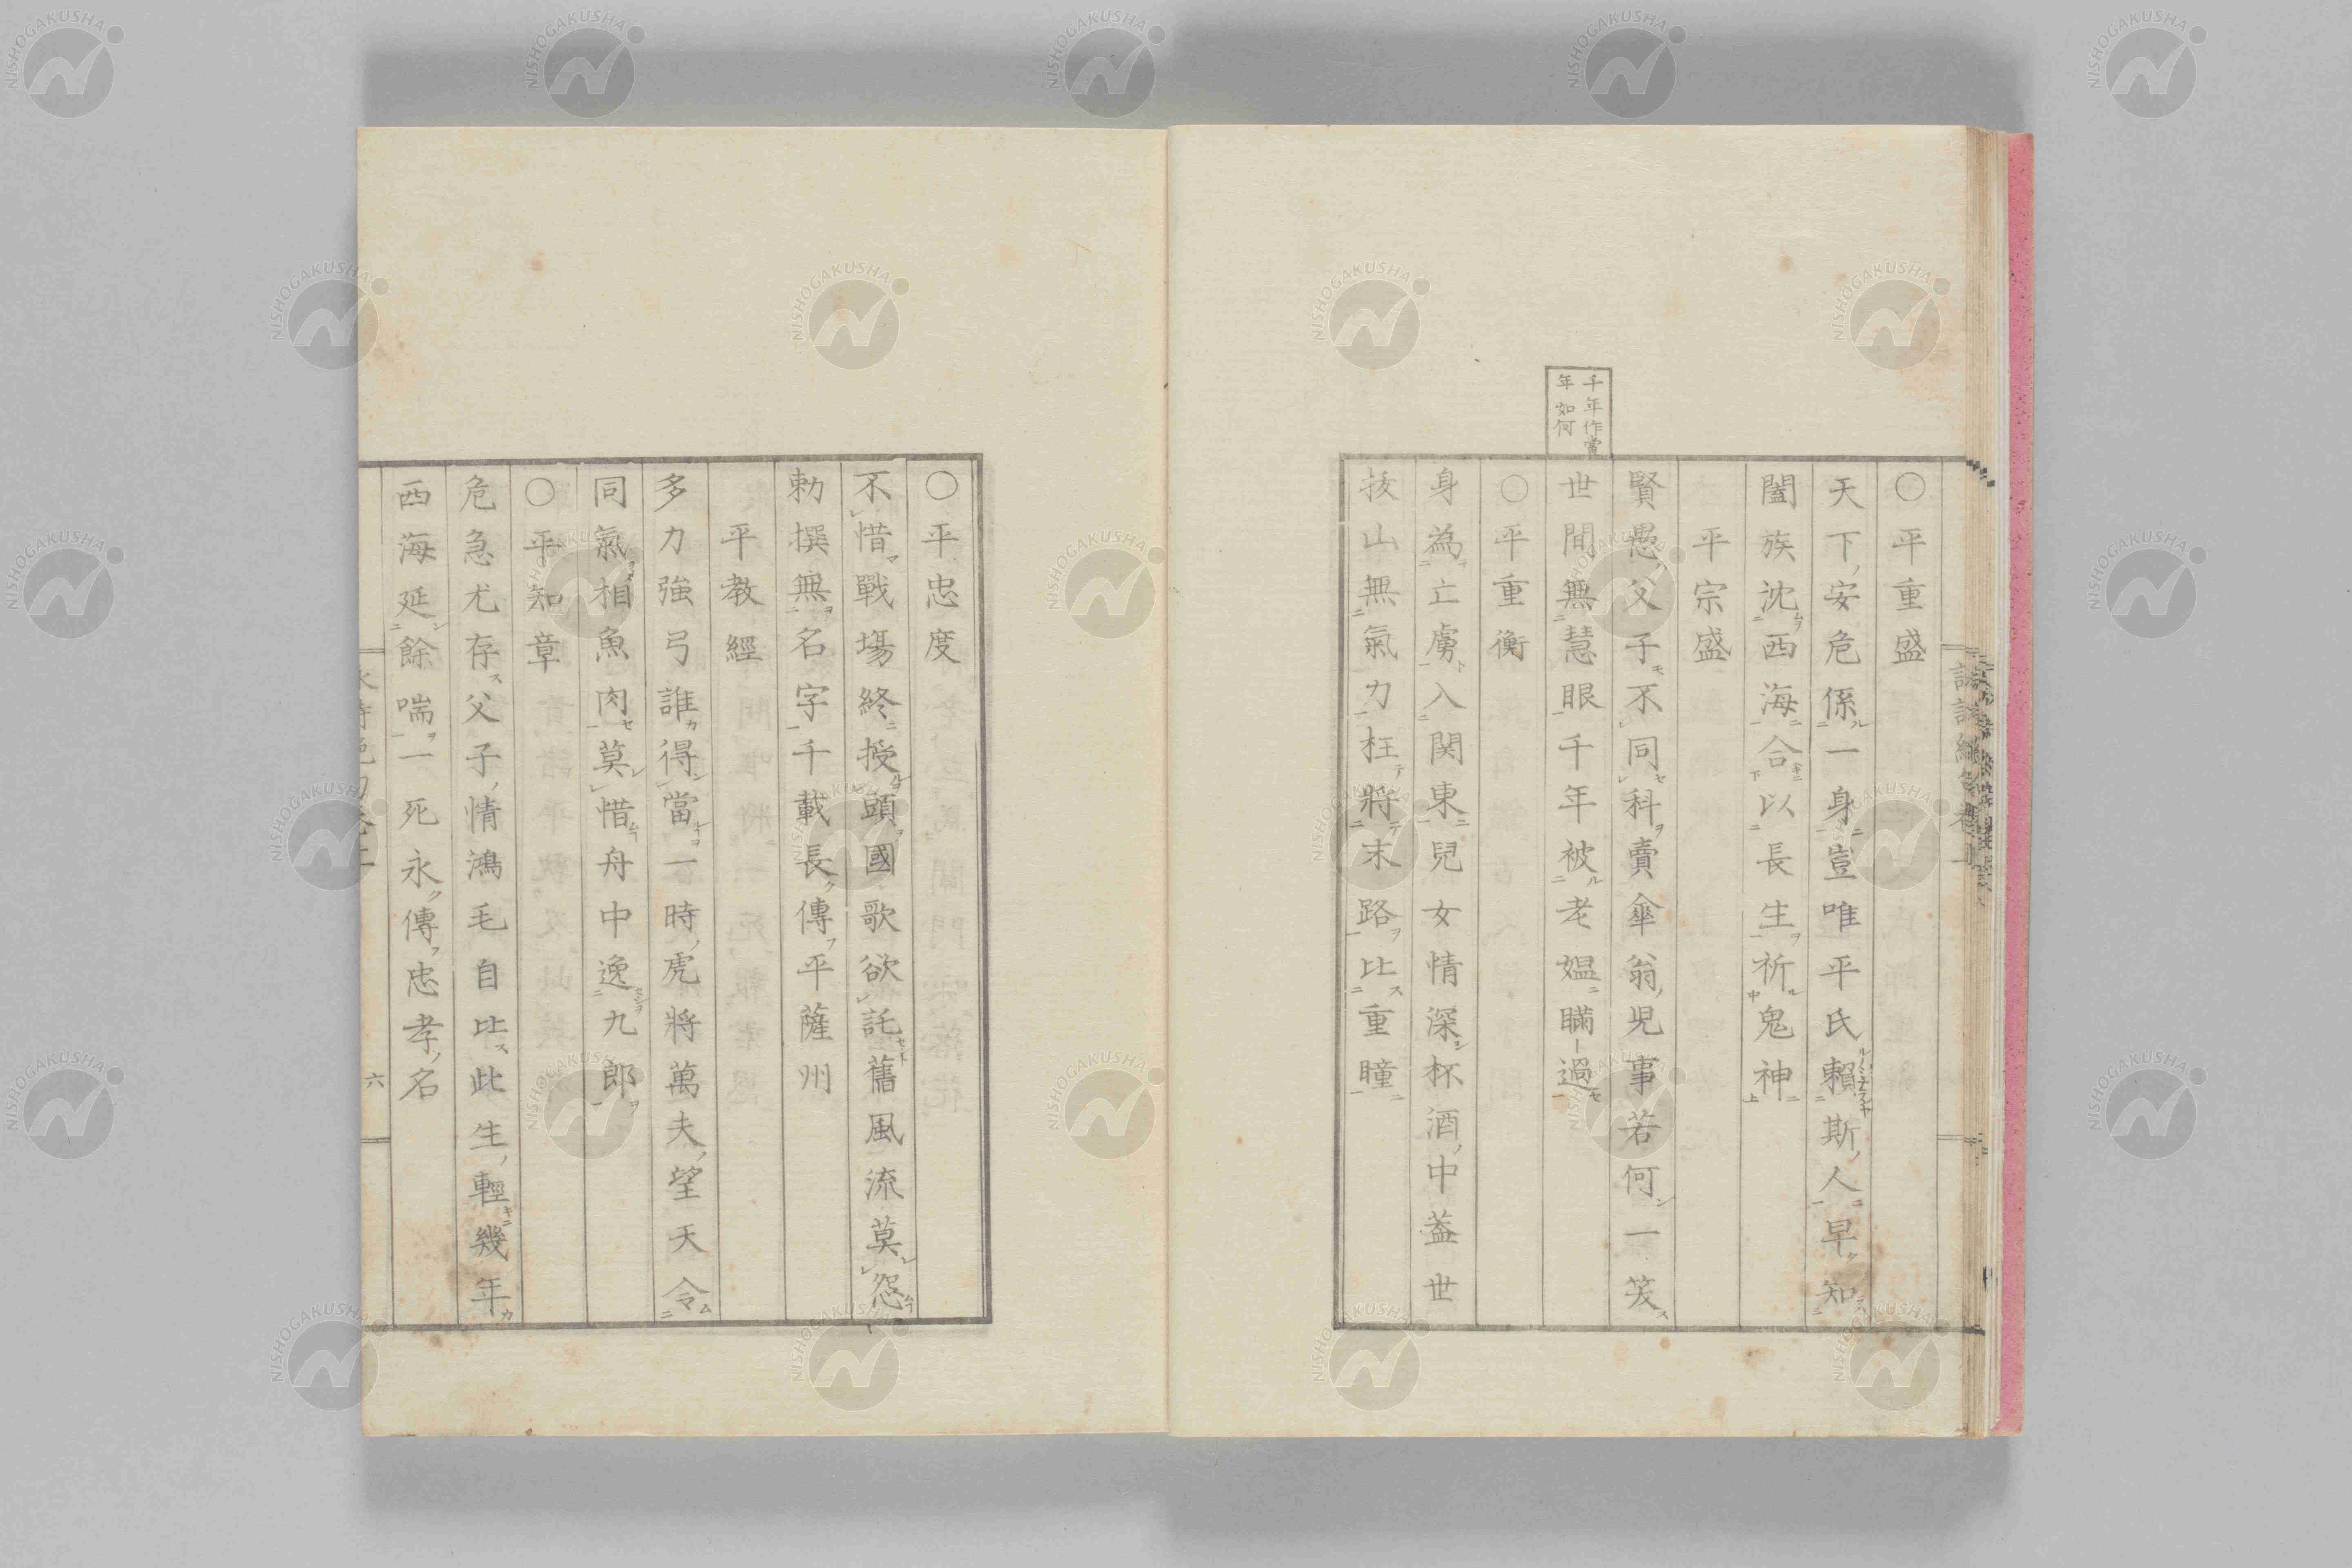 ○平重盛
天下安危係一身豈唯平氏賴斯人早知
闔族沈西海合以長生祈鬼神
平宗盛
賢愚父子不同科賣傘翁児事若何一笑
世間無慧眼千年被老媼瞞過
千年作當
年如何
○平重衡
身為亡虜入関東兒女情深杯酒中蓋世
拔山無氣力枉將末路比重瞳
○平忠度
不惜戰場終授頭國歌欲託舊風流莫怨
勅撰無名字千載長傳平薩州
平教經
多力強弓誰得當一時虎將萬夫望天令
同氣相魚肉莫惜舟中逸九郎
○平知章
危急尤存父子情鴻毛自比此生輕幾年
西海延餘喘一死永傳忠孝名
六
NISHOGAKUSHA